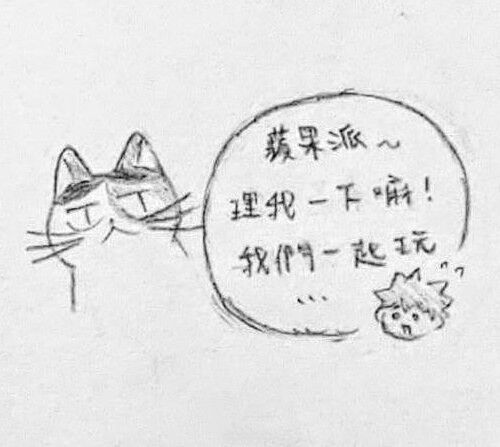 蘋果派～
理我一下嘛！
我們一起玩
...